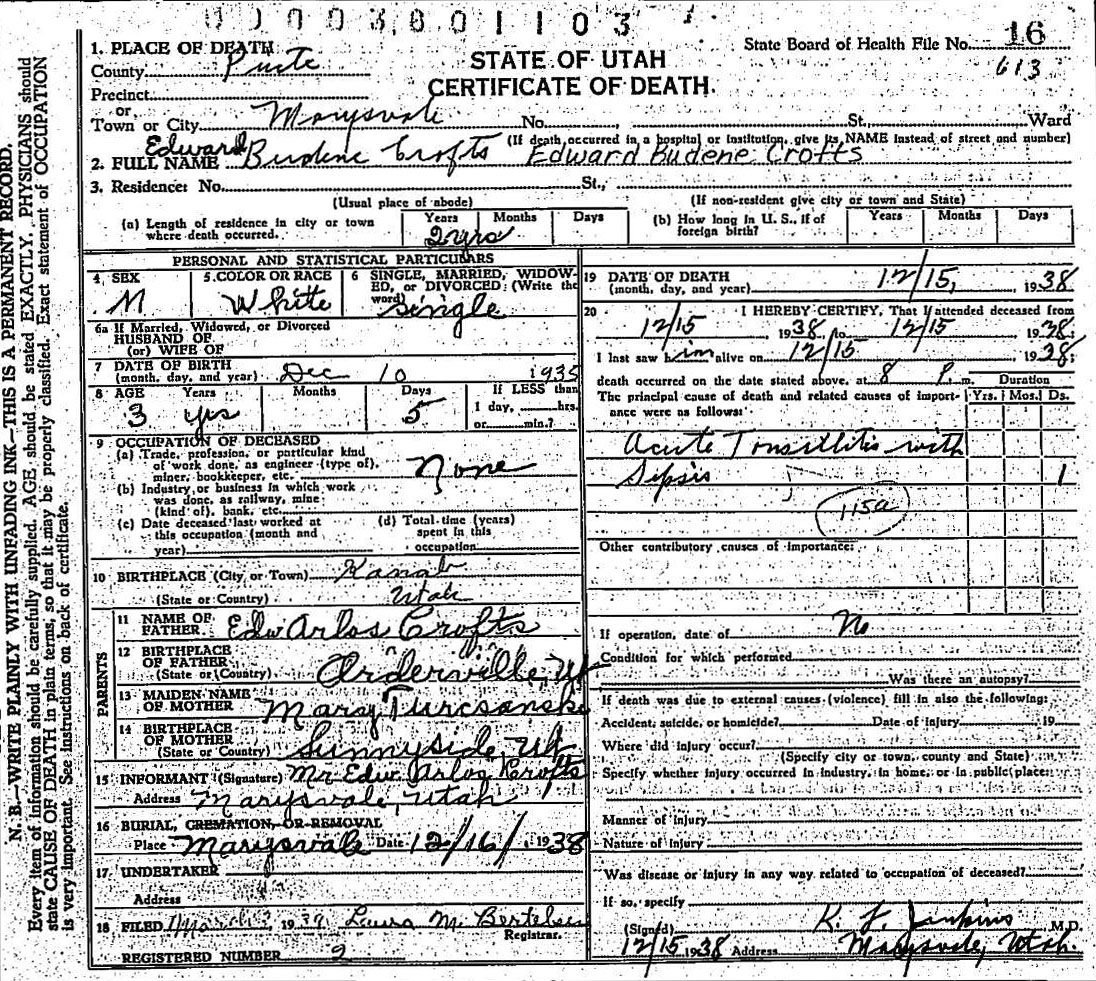 00003801103
1. PLACE OF DEATH
County Piute
Precinct
or
Town or City Marysvale No. St., Ward
STATE OF UTAH
CERTIFICATE OF DEATH
State Board of Health File No. 16
613
(If death occurred in a hospital or institution, give its NAME instead of street and number)
2. FULL NAME Edward Burdene Crofts Edward Budene Crofts
3. Residence: No. St.,
(Usual place of abode) (If non-resident give city or town and State)
(a) Length of residence in city or town where death occurred. Years Months Days
2 yrs
(b) How long in U. S., if of foreign birth? Years Months Days
PERSONAL AND STATISTICAL PARTICULARS
4 SEX
M
5. COLOR OR RACE
White
6 SINGLE, MARRIED, WIDOWED, or DIVORCED: (Write the word)
Single
6a If Married, Widowed, or Divorced
HUSBAND OF
(or) WIFE OF
7 DATE OF BIRTH
(month, day, and year) Dec 10 1935
8 AGE Years Months Days If LESS than
1 day, hrs.
or min.?
3 yrs 5
9 OCCUPATION OF DECEASED
(a) Trade, profession, or particular kind
of work done, as engineer (type of),
miner, bookkeeper, etc. None
(b) Industry or business in which work
was done, as railway, mine
(kind of), bank, etc.
(c) Date deceased last worked at
this occupation (month and
year)
(d) Total time (years)
spent in this
occupation
10 BIRTHPLACE (City or Town) Kanab
(State or Country) Utah
PARENTS
11 NAME OF FATHER Edw Arlos Crofts
12 BIRTHPLACE OF FATHER
(State or Country) Orderville, Ut
13 MAIDEN NAME OF MOTHER Mary Turcsanske
14 BIRTHPLACE OF MOTHER
(State or Country) Sunnyside, Ut
15 INFORMANT (Signature) Mr Edw. Arlos Crofts
Address Marysvale, Utah
16 BURIAL, CREMATION, OR REMOVAL
Place Marysvale Date 12/16/, 1938
17. UNDERTAKER
Address
18 FILED March 3, 1939 Laura M. Bertelsen
Registrar.
REGISTERED NUMBER 2
19 DATE OF DEATH
(month, day, and year) 12/15, 1938
20 I HEREBY CERTIFY, That I attended deceased from
12/15 1938 to 12/15 1938;
I last saw him alive on 12/15 1938;
death occurred on the date stated above, at 8 P. m.
Duration
The principal cause of death and related causes of importance were as follows: Yrs. Mos. Ds.
Acute Tonsillitis with
Sepsis 1
115a
Other contributory causes of importance:
If operation, date of No
Condition for which performed
Was there an autopsy?
If death was due to external causes (violence) fill in also the following:
Accident, suicide, or homicide? Date of injury 19
Where did injury occur?
(Specify city or town, county and State)
Specify whether injury occurred in industry, in home, or in public place:
Manner of injury
Nature of injury
Was disease or injury in any way related to occupation of deceased?
If so, specify
(Signed) R. F. Jenkins M.D.
12/15 1938 Address Marysvale, Utah.
N. B.—WRITE PLAINLY WITH UNFADING INK—THIS IS A PERMANENT RECORD.
Every item of information should be carefully supplied. AGE should be stated EXACTLY. PHYSICIANS should
state CAUSE OF DEATH in plain terms, so that it may be properly classified. Exact statement of OCCUPATION
is very important. See instructions on back of certificate.